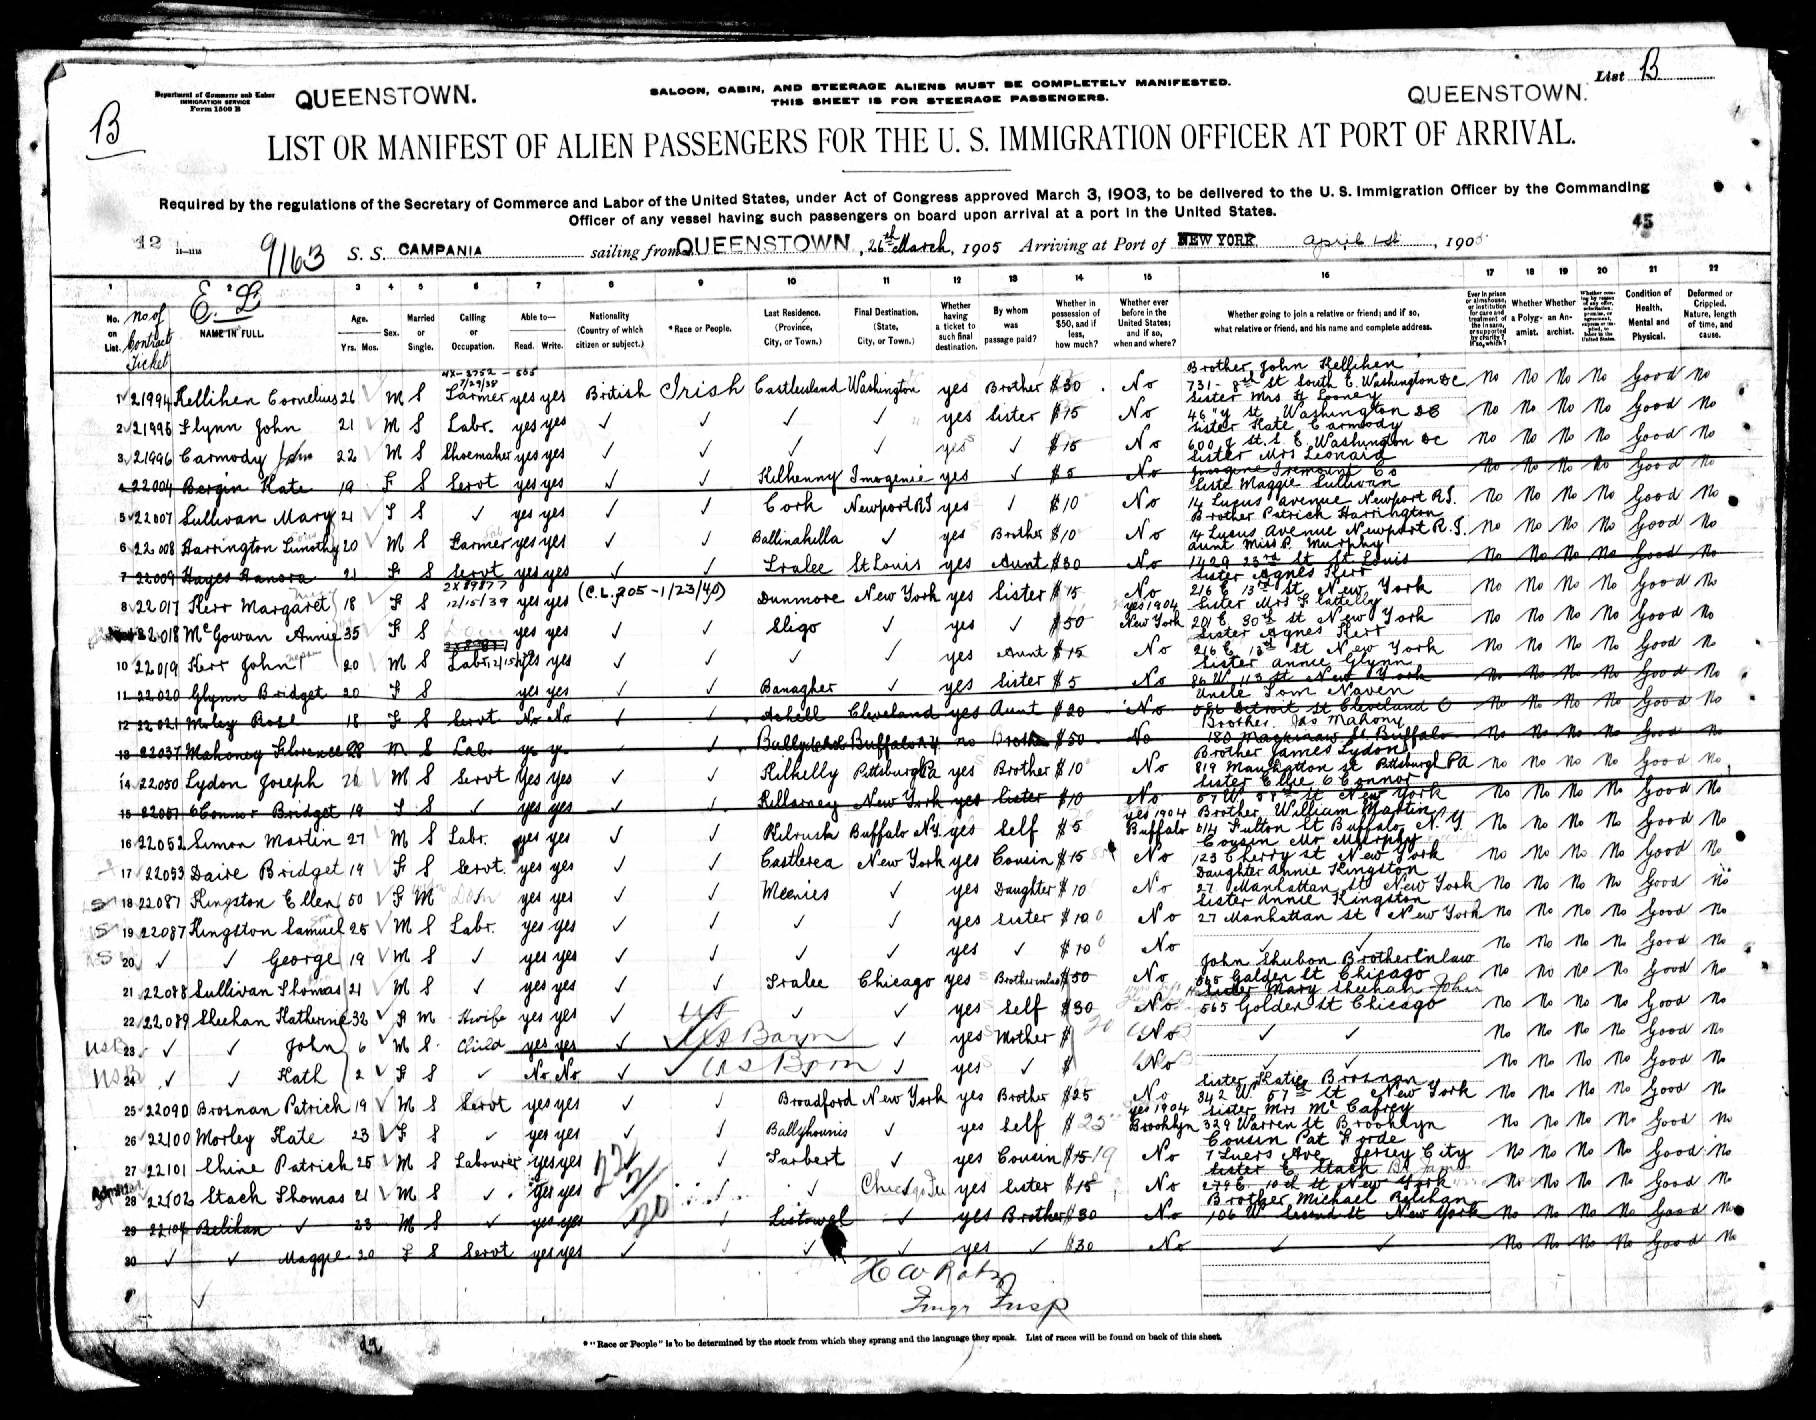 List B
Department of Commerce and Labor
IMMIGRATION SERVICE
Form 1500 B
QUEENSTOWN.
SALOON, CABIN, AND STEERAGE ALIENS MUST BE COMPLETELY MANIFESTED.
THIS SHEET IS FOR STEERAGE PASSENGERS.
QUEENSTOWN.
B
LIST OR MANIFEST OF ALIEN PASSENGERS FOR THE U. S. IMMIGRATION OFFICER AT PORT OF ARRIVAL.
Required by the regulations of the Secretary of Commerce and Labor of the United States, under Act of Congress approved March 3, 1903, to be delivered to the U. S. Immigration Officer by the Commanding
Officer of any vessel having such passengers on board upon arrival at a port in the United States.
45
12 9163 S. S. CAMPANIA sailing from QUEENSTOWN, 26th March, 1905 Arriving at Port of NEW YORK April 1st, 1905
1 2 3 4 5 6 7 8 9 10 11 12 13 14 15 16 17 18 19 20 21 22
No. on List. No of Contract Ticket NAME IN FULL. Age. Yrs. Mos. Sex. Married or Single. Calling or Occupation. Able to— Read. Write. Nationality (Country of which citizen or subject.) *Race or People. Last Residence. (Province, City, or Town.) Final Destination. (State, City, or Town.) Whether having a ticket to such final destination. By whom was passage paid? Whether in possession of $50, and if less, how much? Whether ever before in the United States; and if so, when and where? Whether going to join a relative or friend; and if so, what relative or friend, and his name and complete address. Whether a Polygamist. Whether an Anarchist. Condition of Health, Mental and Physical. Deformed or Crippled. Nature, length of time, and cause.
1 21994 Kellihen Cornelius 26 M S Farmer yes yes British Irish Castleisland Washington yes Brother $30 No Brother John Kellihen 731 - 8th St South E. Washington DC No No No No Good No
2 21996 Flynn John 21 M S Labr. yes yes ✓ ✓ ✓ ✓ yes Sister $15 No Sister Mrs H Looney 46 "y St Washington DC No No No No Good No
3 21996 Carmody 22 M S Shoemaker yes yes ✓ ✓ ✓ ✓ yes ✓ $15 No Sister Kate Carmody 600 St. S. E. Washington DC No No No No Good No
4 22004 Bergin Kate 19 F S Servt yes yes ✓ ✓ Kilkenny Imogenie yes ✓ $5 No Sister Mrs Leonard Imogene Fremount Co No No No No Good No
5 22007 Sullivan Mary 21 F S ✓ yes yes ✓ ✓ Cork Newport RI yes ✓ $10 No Siste Maggie Sullivan 14 Lucus avenue Newport R.I. No No No No Good No
6 22008 Harrington Timothy 20 M S Farmer yes yes ✓ ✓ Ballinakella ✓ yes Brother $10 No Brother Patrick Harrington 14 Lucus Avenue Newport R.I. No No No No Good No
7 22009 Hayes Hanora 21 F S Servt yes yes ✓ ✓ Tralee St Louis yes Aunt $30 No Aunt Miss P. Murphy 1429 23rd St St Louis No No No No Good No
8 22017 Kerr Margaret 18 F S 12/15/39 yes yes (C.L. 205-1/23/40) Dunmore New York yes Sister $15 No Sister Agnes Kerr 216 E 13th St New York No No No No Good No
22018 McGowan Annie 35 F S yes yes ✓ ✓ Sligo ✓ yes ✓ $50 yes 1904 New York 201 E. 30th St New York No No No No Good No
10 22019 Kerr John 20 M S Labr yes yes ✓ ✓ ✓ ✓ yes Aunt $15 No Sister Agnes Kerr 216 E 13th St New York No No No No Good No
11 22020 Glynn Bridget 20 F S yes yes ✓ ✓ Banagher ✓ yes Sister $5 No Sister Annie Glynn 86 W 113 St New York No No No No Good No
12 22021 Moley Rose 18 F S Servt No No ✓ ✓ Achill Cleveland yes Aunt $20 No Uncle Tom Naven Detroit St Cleveland O No No No No Good No
13 22037 Mahoney Florence 28 M S Labr y. y. ✓ Buffalo NY no Brother $50 No Brother Jas Mahony 180 Mackinaw St Buffalo No No No No Good No
14 22050 Lydon Joseph M S Servt yes yes ✓ ✓ Kilkelly Pittsburg Pa yes Brother $10 No Brother James Lydon 819 Manhatton St Pittsburgh Pa No No No No Good No
15 22051 OConnor Bridget 19 F S ✓ yes yes ✓ ✓ Killarney New York yes Sister $10 No Sister Ellie O Connor New York No No No No Good No
16 22052 Simon Martin 27 M S Labr. yes yes ✓ ✓ Kilrush Buffalo N.Y. yes Self $5 yes 1904 Buffalo Brother William Martin 614 Fulton St Buffalo N.Y. No No No No Good No
17 22053 Daire Bridget 19 F S Servt. yes yes ✓ ✓ Castlerea New York yes Cousin $15 No Cousin Mr Murphy 123 Cherry St New York No No No No Good No
18 22087 Kingston Ellen 50 F M yes yes ✓ ✓ Meenies ✓ yes Daughter $10 No Daughter Annie Kingston 27 Manhattan St New York No No No No Good No
19 22087 Kingston Samuel 25 M S Labr. yes yes ✓ ✓ ✓ ✓ yes Sister $10 No Sister Annie Kingston 27 Manhattan St New York No No No No Good No
20 ✓ ✓ George 19 M S ✓ yes yes ✓ ✓ ✓ ✓ yes ✓ $10 No ✓ ✓ No No No No Good No
21 22088 Sullivan Thomas 21 M S ✓ yes yes ✓ ✓ Tralee Chicago yes Brotherinlaw $50 No John Shubon Brotherinlaw 565 Golden St Chicago No No No No Good No
22 22089 Sheehan Katherine 32 F M Hwife yes yes ✓ US ✓ ✓ yes Self $30 No Sister Mary Sheehan John 565 Golden St Chicago No No No No Good No
USB 23 ✓ ✓ John 6 M S Child yes yes ✓ US Born ✓ yes Mother $ No ✓ ✓ No No No No Good No
USB 24 ✓ ✓ Kath 2 F S ✓ No No ✓ ✓ US Born ✓ yes ✓ $ No ✓ ✓ No No No No Good No
25 22090 Brosnan Patrick 19 M S Servt yes yes ✓ ✓ Broadford New York yes Brother $25 No Sister Katie Brosnan 342 W. 57th St New York No No No No Good No
26 22100 Morley Kate 23 F S ✓ yes yes ✓ ✓ Ballyhaunis ✓ yes Self $25 yes 1904 Brooklyn Sister Mrs Mc Cafrey 329 Warren St Brooklyn No No No No Good No
27 22101 Shine Patrick 25 M S Labourer yes yes ✓ Tarbert ✓ yes Cousin $15 No Cousin Pat Forde 7 Luers Ave Jersey City No No No No Good No
Admitted 28 22102 Stach Thomas 21 M S ✓ yes yes ✓ ✓ yes Sister $15 No Sister E Stach 279 E. 10th St New York No No No No Good No
29 22104 Relihan ✓ 23 M S ✓ yes yes ✓ ✓ Listowel ✓ yes Brother $30 No Brother Michael Relihan 106 W. Second St New York No No No No Good No
30 ✓ ✓ Maggie 20 F S Servt yes yes ✓ ✓ ✓ ✓ yes ✓ $30 No ✓ ✓ No No No No Good No
Imgr Insp
* "Race or People" is to be determined by the stock from which they sprang and the language they speak. List of races will be found on back of this sheet.